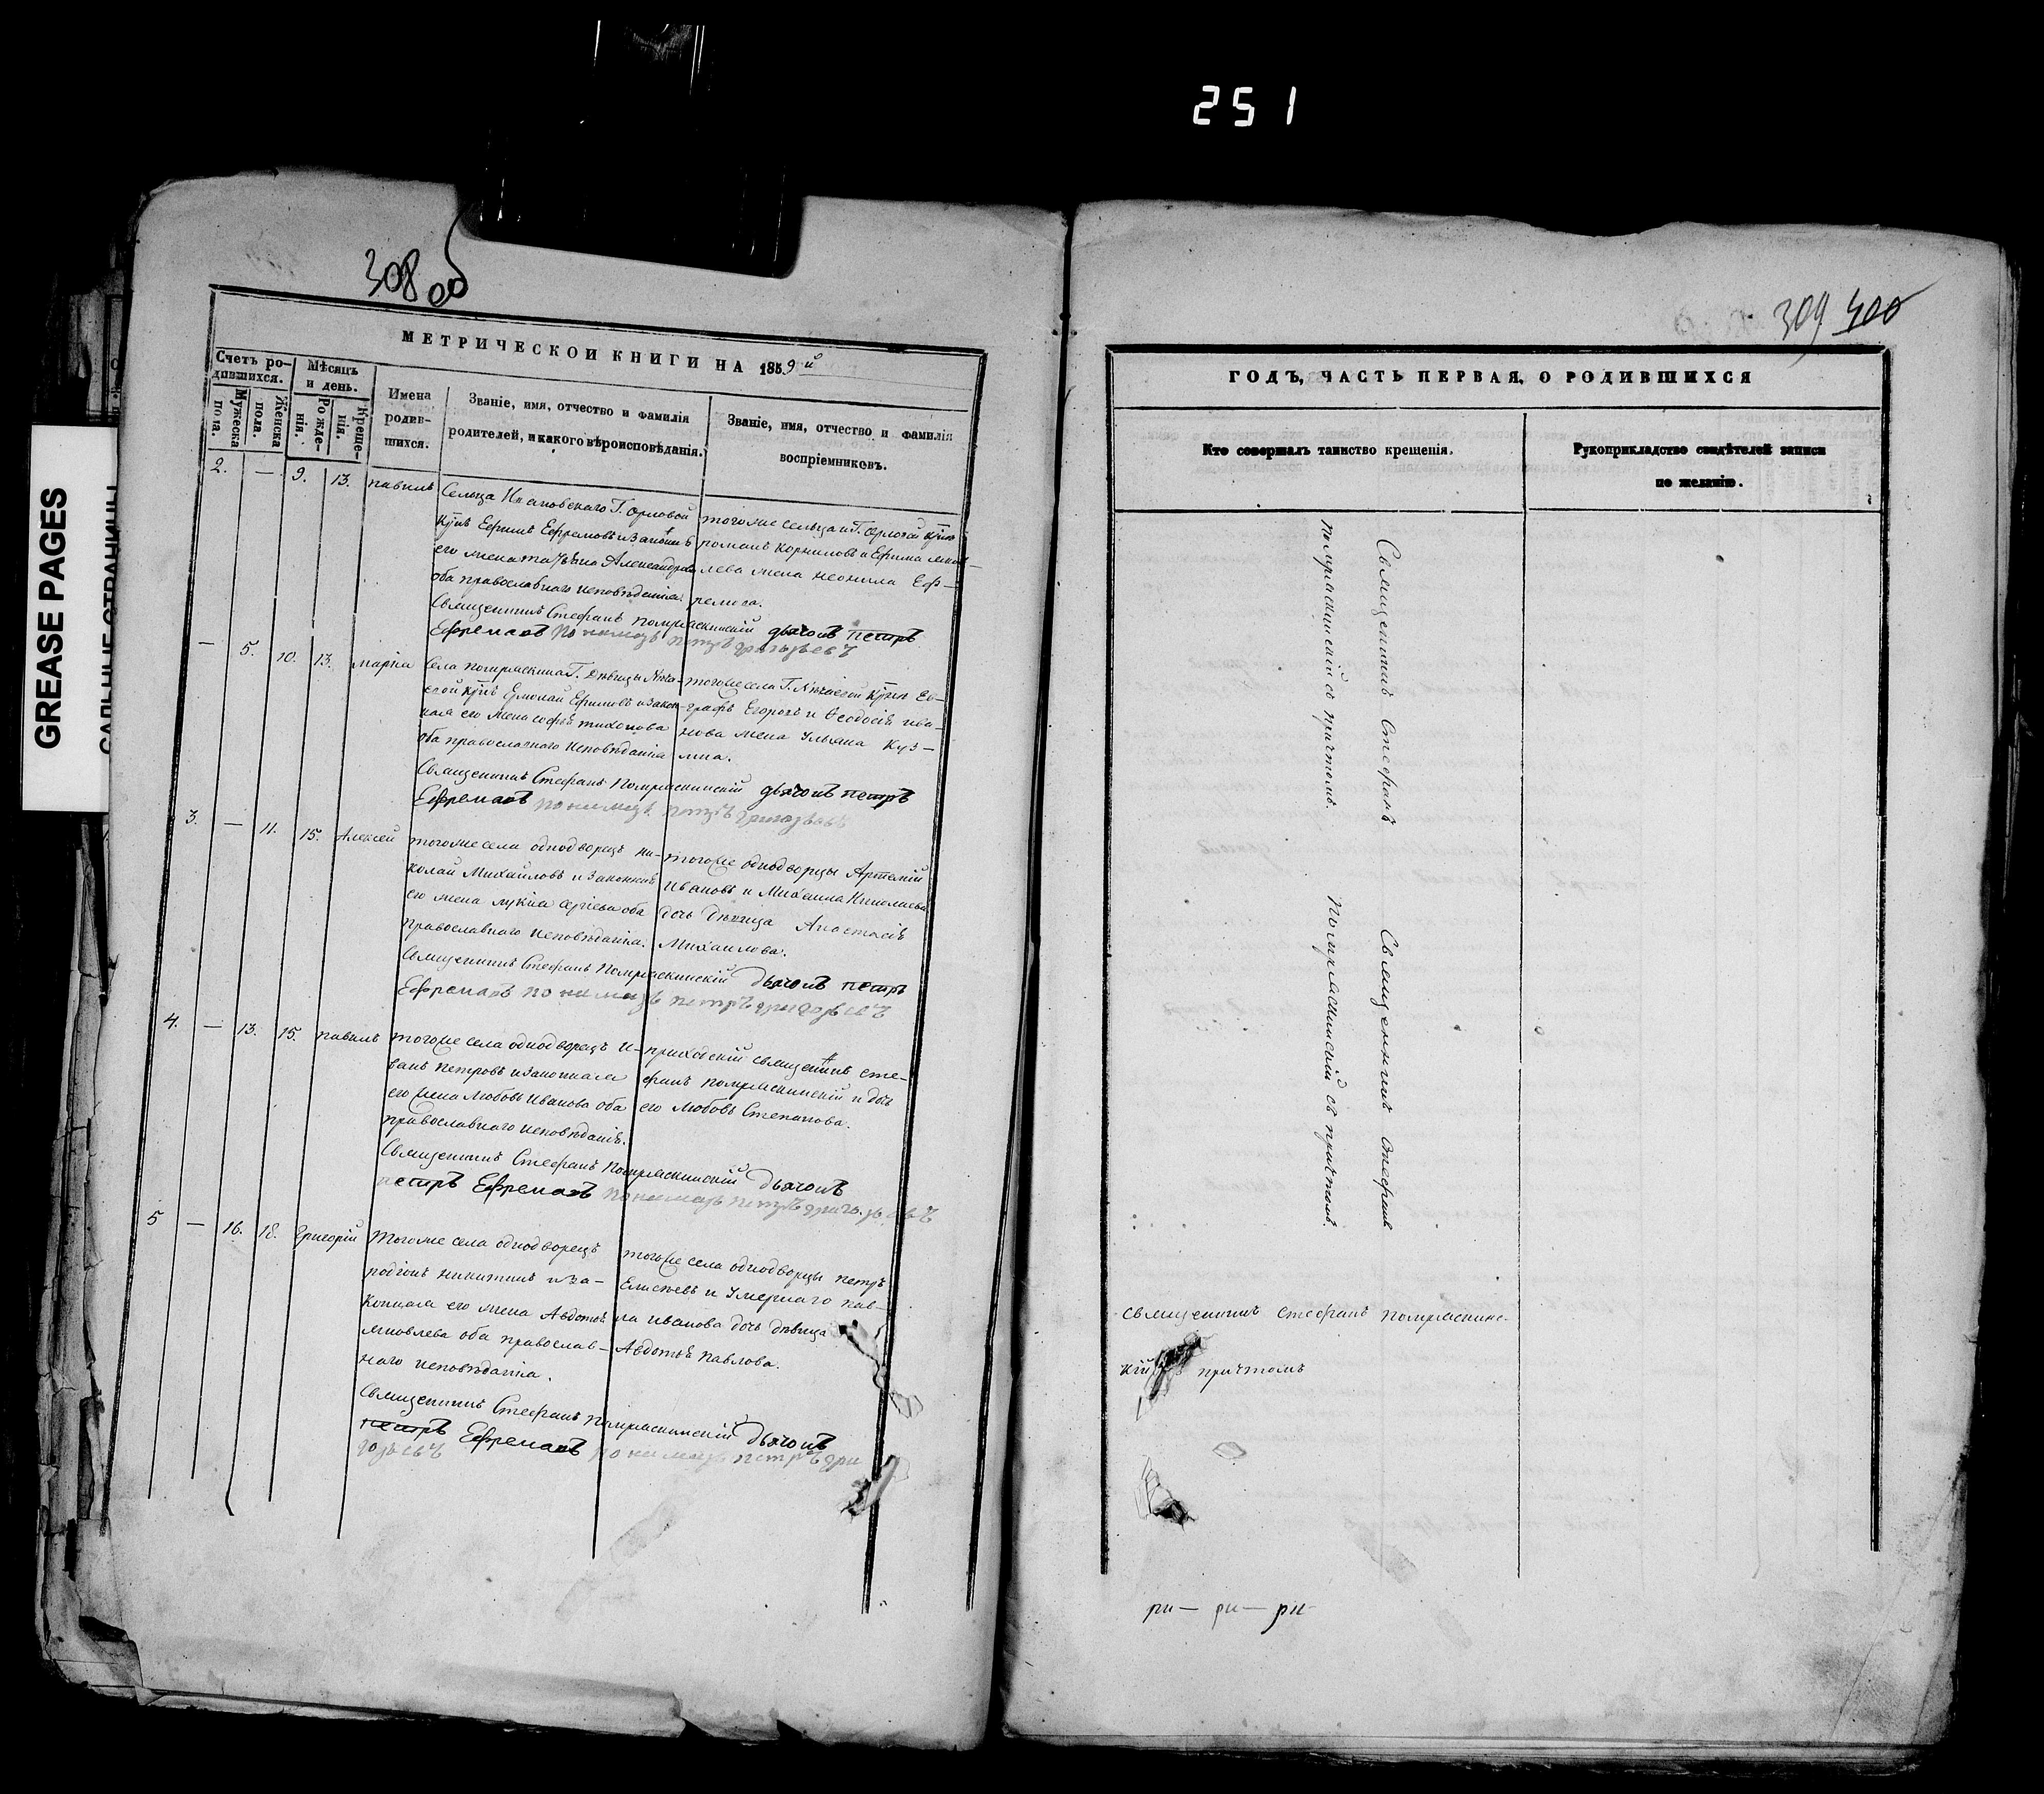 251
GREASE PAGES
308 об
МЕТРИЧЕСКОЙ КНИГИ НА 1859 й
Счетъ родившихся.
Мужеска пола.
Женска пола.
Мѣсяцъ и день.
Рожденія.
Крещенія.
Имена родившихся.
Званіе, имя, отчество и фамилія родителей, и какого вѣроисповѣданія.
Званіе, имя, отчество и фамилія воспріемниковъ.
2. — 9. 13. павилъ
Сельца Ивановскаго Г. Орловой
Ефимъ Ефремовъ и законная
его жена татьяна Александрова
оба православнаго исповѣданія.
тогоже сельца и Г. Орловой
романъ Корниловъ и Ефима
жена неонила Еф-
ремова.
Священникъ Стефанъ дьячокъ петръ
Ефремовъ пономарь петръ григорьевъ
— 5. 10. 13. марія
Села Г. дѣвицы
Ермолай Ефимовъ и закон-
ная его жена софья тихонова
оба православнаго исповѣданія
тогоже села Г.
графъ Егоровъ и Ѳеодосія ива-
нова жена Ульяна Куз-
мина.
Священникъ Стефанъ дьячокъ петръ
Ефремовъ пономарь петръ григорьевъ
3. — 11. 15. Алексей
тогоже села однодворецъ ни-
колай Михайловъ и законная
его жена лукія сергіева оба
православнаго исповѣданія.
тогоже однодворцы Артемій
Ивановъ и Михаила Николаева
дочь дѣвица Анастасія
Михаилова.
Священникъ Стефанъ дьячокъ петръ
Ефремовъ пономарь петръ григорьевъ
4. — 13. 15. павилъ
тогоже села однодворецъ и-
ванъ петровъ и законная
его жена любовь иванова оба
православнаго исповѣданія.
приходскій священникъ сте-
фанъ и дочь
его любовь Степанова.
Священникъ Стефанъ дьячокъ
петръ Ефремовъ пономарь петръ григорьевъ
5 — 16. 18. григорій
тогоже села однодворецъ
родіонъ никитинъ и за-
конная его жена Авдотья
яковлева оба православ-
наго исповѣданія.
тогоже села однодворцы петръ
Елисѣевъ и умершаго пав-
ла иванова дочь дѣвица
Авдотья павлова.
Священникъ Стефанъ дьячокъ
петръ Ефремовъ пономарь петръ гри
горьевъ
309 400
ГОДЪ, ЧАСТЬ ПЕРВАЯ, О РОДИВШИХСЯ
Кто совершалъ таинство крещенія.
Рукоприкладство свидѣтелей записи
по желанію.
Священникъ Стефанъ
съ причтомъ.
Священникъ стефанъ
съ причтомъ.
священникъ стефанъ
кій причтомъ
ри— ри— ри